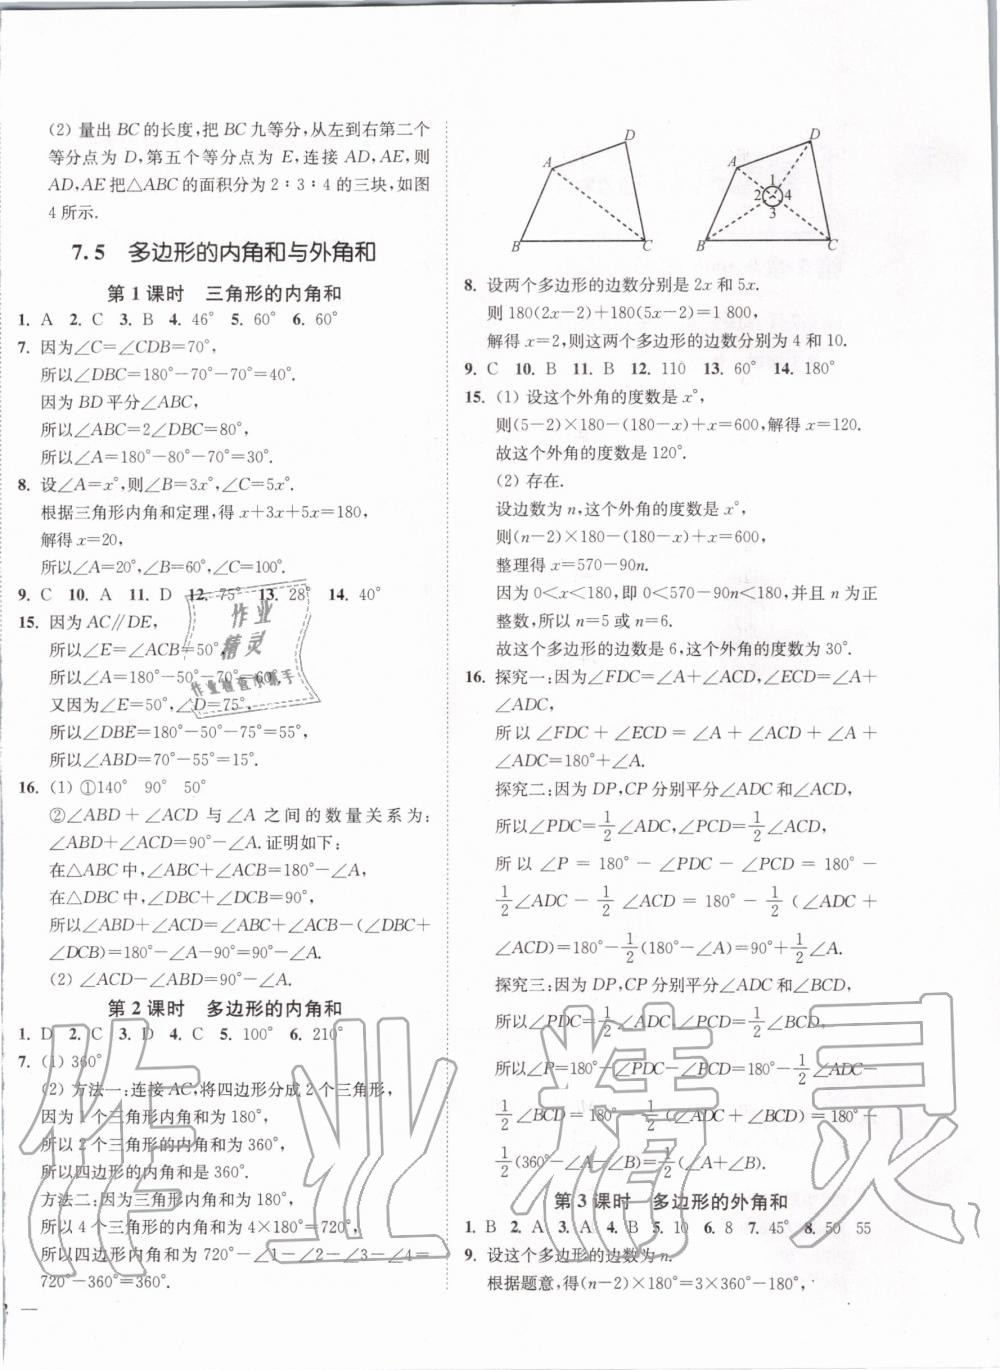 (2) 量出 BC 的长度,把 BC 九等分,从左到右第二个
等分点为 D,第五个等分点为 E,连接 AD,AE,则
AD,AE 把△ABC 的面积分为 2∶3∶4 的三块,如图
4 所示.
7.5 多边形的内角和与外角和
第 1 课时 三角形的内角和
1. A 2. C 3. B 4. 46° 5. 60° 6. 60°
7. 因为∠C=∠CDB=70°,
所以∠DBC=180°-70°-70°=40°.
因为 BD 平分∠ABC,
所以∠ABC=2∠DBC=80°,
所以∠A=180°-80°-70°=30°.
8. 设∠A=x°,则∠B=3x°,∠C=5x°.
根据三角形内角和定理,得 x+3x+5x=180,
解得 x=20,
所以∠A=20°,∠B=60°,∠C=100°.
9. C 10. A 11. D 12. 75° 13. 28° 14. 40°
15. 因为 AC∥DE,
所以∠E=∠ACB=50°,
所以∠A=180°-50°-70°=60°.
又因为∠E=50°,∠D=75°,
所以∠DBE=180°-50°-75°=55°,
所以∠ABD=70°-55°=15°.
16. (1) ①140° 90° 50°
②∠ABD+∠ACD 与∠A 之间的数量关系为:
∠ABD+∠ACD=90°-∠A.证明如下:
在△ABC 中,∠ABC+∠ACB=180°-∠A,
在△DBC 中,∠DBC+∠DCB=90°,
所以∠ABD+∠ACD=∠ABC+∠ACB-(∠DBC+
∠DCB)=180°-∠A-90°=90°-∠A.
(2) ∠ACD-∠ABD=90°-∠A.
第 2 课时 多边形的内角和
1. D 2. C 3. D 4. C 5. 100° 6. 210°
7. (1) 360°
(2) 方法一:连接 AC,将四边形分成 2 个三角形,
因为 1 个三角形内角和为 180°,
所以 2 个三角形的内角和为 360°,
所以四边形的内角和是 360°.
方法二:因为三角形内角和为 180°,
所以 4 个三角形的内角和为 4×180°=720°,
所以四边形内角和为 720°-∠1-∠2-∠3-∠4=
720°-360°=360°.
A D B C
A D B C 1 2 3 4
8. 设两个多边形的边数分别是 2x 和 5x.
则 180(2x-2)+180(5x-2)=1 800,
解得 x=2,则这两个多边形的边数分别为 4 和 10.
9. C 10. B 11. B 12. 110 13. 60° 14. 180°
15. (1) 设这个外角的度数是 x°,
则(5-2)×180-(180-x)+x=600,解得 x=120.
故这个外角的度数是 120°.
(2) 存在.
设边数为 n,这个外角的度数是 x°,
则(n-2)×180-(180-x)+x=600,
整理得 x=570-90n.
因为 0<x<180,即 0<570-90n<180,并且 n 为正
整数,所以 n=5 或 n=6.
故这个多边形的边数是 6,这个外角的度数为 30°.
16. 探究一:因为∠FDC=∠A+∠ACD,∠ECD=∠A+
∠ADC,
所以∠FDC+∠ECD=∠A+∠ACD+∠A+
∠ADC=180°+∠A.
探究二:因为 DP,CP 分别平分∠ADC 和∠ACD,
所以∠PDC=1/2∠ADC,∠PCD=1/2∠ACD,
所以∠P=180°-∠PDC-∠PCD=180°-
1/2∠ADC-1/2∠ACD=180°-1/2(∠ADC+
∠ACD)=180°-1/2(180°-∠A)=90°+1/2∠A.
探究三:因为 DP,CP 分别平分∠ADC 和∠BCD,
所以∠PDC=1/2∠ADC,∠PCD=1/2∠BCD,
所以∠P=180°-∠PDC-∠PCD=180°-1/2∠ADC-
1/2∠BCD=180°-1/2(∠ADC+∠BCD)=180°-
1/2(360°-∠A-∠B)=1/2(∠A+∠B).
第 3 课时 多边形的外角和
1. B 2. A 3. A 4. B 5. 10 6. 8 7. 45° 8. 50 55
9. 设这个多边形的边数为 n.
根据题意,得(n-2)×180°=3×360°-180°,
作业
精灵
作业精灵